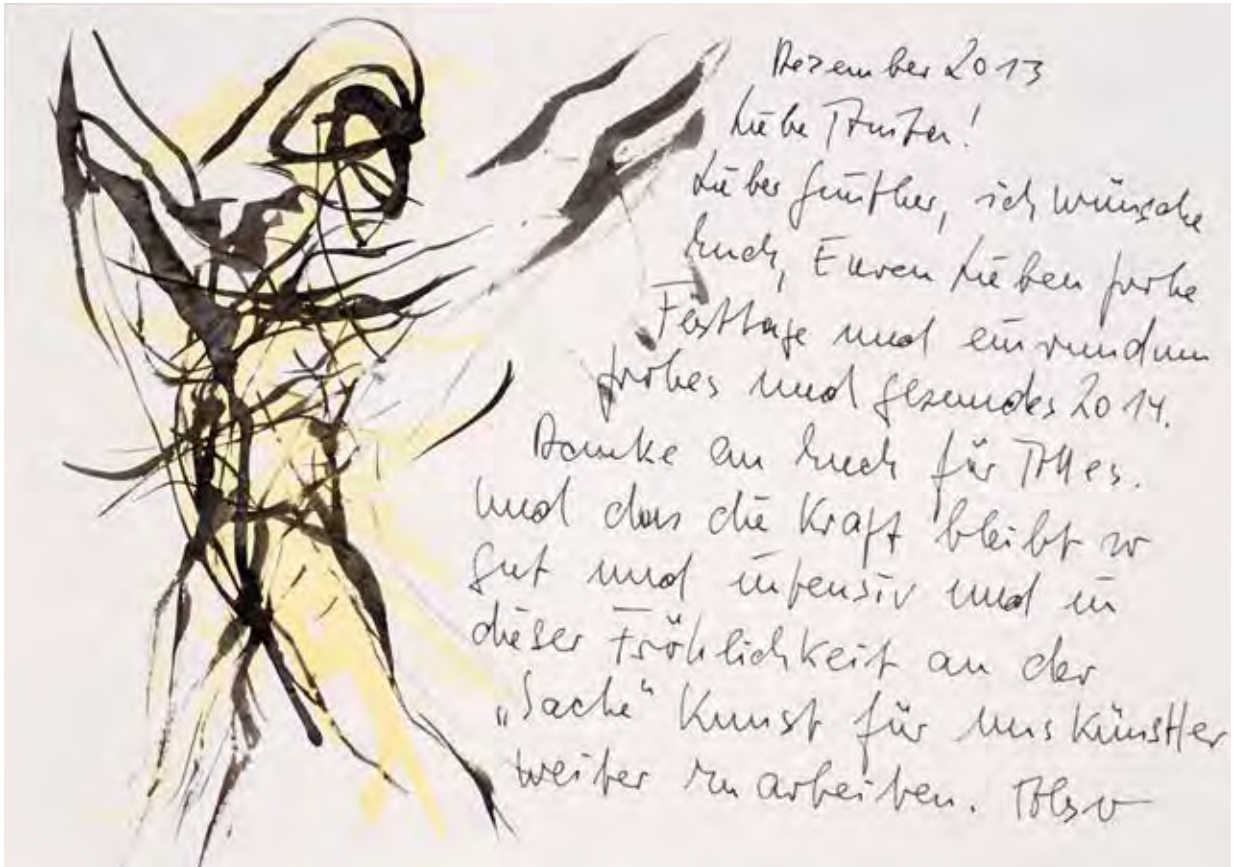 Dezember 2013
Liebe !
Lieber Günther, ich wünsche
Euch, Euren Lieben frohe
Festtage und ein rundum
frohes und gesundes 2014.
Danke an Euch für Alles.
Und das die Kraft bleibt so
gut und intensiv und in
dieser Fröhlichkeit an der
„Sache“ Kunst für uns Künstler
weiter zu arbeiten.